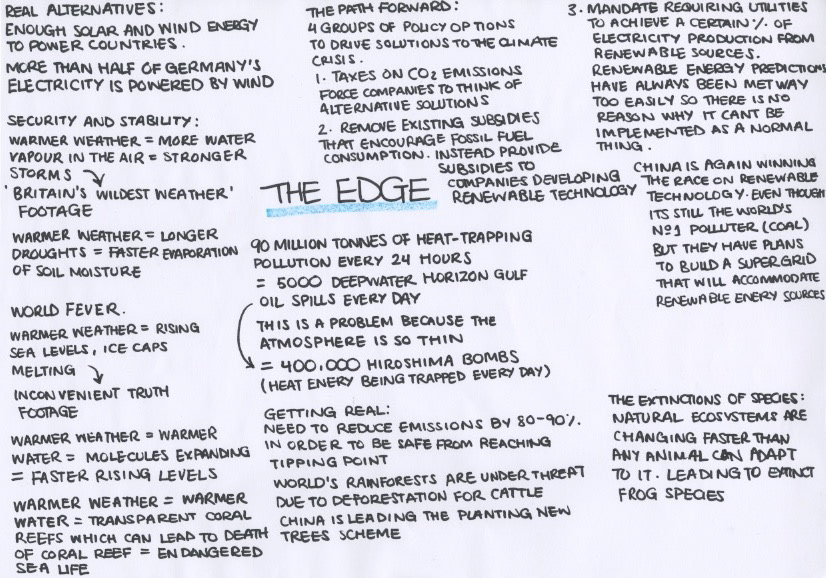 REAL ALTERNATIVES:
ENOUGH SOLAR AND WIND ENERGY
TO POWER COUNTRIES.
MORE THAN HALF OF GERMANY'S
ELECTRICITY IS POWERED BY WIND
SECURITY AND STABILITY:
WARMER WEATHER = MORE WATER
VAPOUR IN THE AIR = STRONGER
STORMS
'BRITAIN'S WILDEST WEATHER'
FOOTAGE
WARMER WEATHER = LONGER
DROUGHTS = FASTER EVAPORATION
OF SOIL MOISTURE
WORLD FEVER.
WARMER WEATHER = RISING
SEA LEVELS, ICE CAPS
MELTING
INCONVENIENT TRUTH
FOOTAGE
WARMER WEATHER = WARMER
WATER = MOLECULES EXPANDING
= FASTER RISING LEVELS
WARMER WEATHER = WARMER
WATER = TRANSPARENT CORAL
REEFS WHICH CAN LEAD TO DEATH
OF CORAL REEF = ENDANGERED
SEA LIFE
THE PATH FORWARD:
4 GROUPS OF POLICY OPTIONS
TO DRIVE SOLUTIONS TO THE CLIMATE
CRISIS.
1. TAXES ON CO2 EMISSIONS
FORCE COMPANIES TO THINK OF
ALTERNATIVE SOLUTIONS
2. REMOVE EXISTING SUBSIDIES
THAT ENCOURAGE FOSSIL FUEL
CONSUMPTION. INSTEAD PROVIDE
SUBSIDIES TO
COMPANIES DEVELOPING
RENEWABLE TECHNOLOGY
THE EDGE
90 MILLION TONNES OF HEAT-TRAPPING
POLLUTION EVERY 24 HOURS
= 5000 DEEPWATER HORIZON GULF
OIL SPILLS EVERY DAY
THIS IS A PROBLEM BECAUSE THE
ATMOSPHERE IS SO THIN
= 400,000 HIROSHIMA BOMBS
(HEAT ENERY BEING TRAPPED EVERY DAY)
GETTING REAL:
NEED TO REDUCE EMISSIONS BY 80-90%.
IN ORDER TO BE SAFE FROM REACHING
TIPPING POINT
WORLD'S RAINFORESTS ARE UNDER THREAT
DUE TO DEFORESTATION FOR CATTLE
CHINA IS LEADING THE PLANTING NEW
TREES SCHEME
3. MANDATE REQUIRING UTILITIES
TO ACHIEVE A CERTAIN % OF
ELECTRICITY PRODUCTION FROM
RENEWABLE SOURCES.
RENEWABLE ENERGY PREDICTIONS
HAVE ALWAYS BEEN MET WAY
TOO EASILY SO THERE IS NO
REASON WHY IT CANT BE
IMPLEMENTED AS A NORMAL
THING.
CHINA IS AGAIN WINNING
THE RACE ON RENEWABLE
TECHNOLOGY. EVEN THOUGH
ITS STILL THE WORLD'S
Nº1 POLLUTER (COAL)
BUT THEY HAVE PLANS
TO BUILD A SUPERGRID
THAT WILL ACCOMMODATE
RENEWABLE ENERY SOURCES
THE EXTINCTIONS OF SPECIES:
NATURAL ECOSYSTEMS ARE
CHANGING FASTER THAN
ANY ANIMAL CAN ADAPT
TO IT. LEADING TO EXTINCT
FROG SPECIES